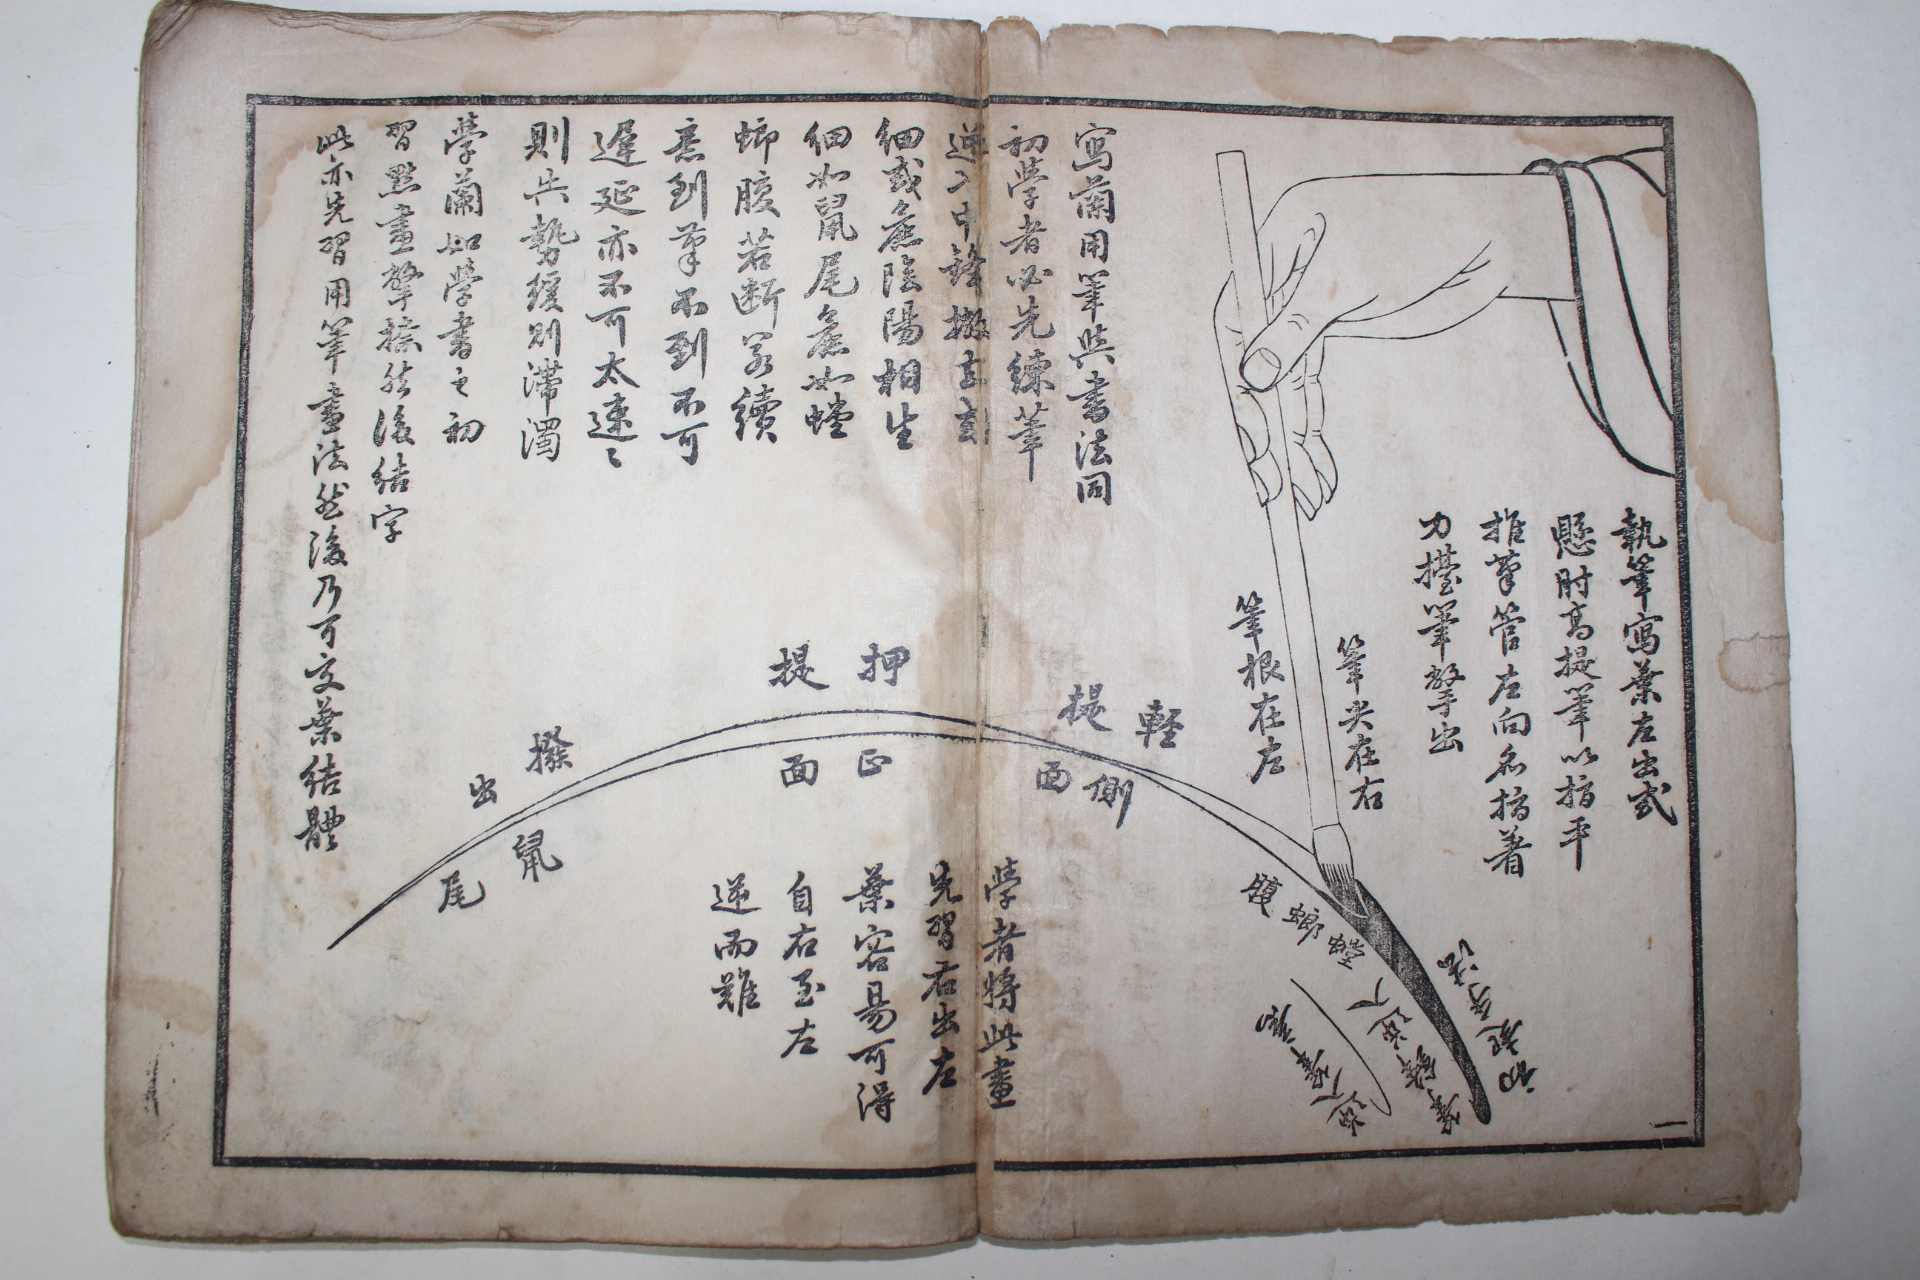 執筆寫葉左出式
懸肘高提筆以指平
推筆管左向名指著
力擡筆擎出
筆尖在右
筆根在左
寫蘭用筆與書法同
初學者必先練筆
逆入中鋒撇去
細或麁陰陽相生
細如鼠尾麁如螳
螂腹若断若續
意到筆不到不可
遲延亦不可太速〻
則失勢緩則滯濁
學蘭如學書之初
習點畫擎捺然後結字
此亦先習用筆畫法然後乃可交葉結體
輕
提
側
面
押
提
正
面
撥
出
鼠
尾
螳
螂
腹
初起
逆入
學者將此畫
先習右出左
葉容易可得
自右至左
逆而難
一